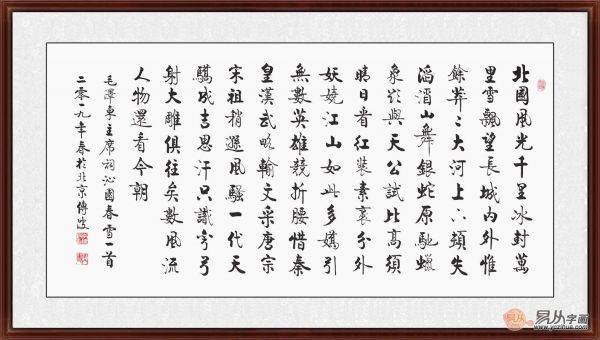 北國風光千里冰封萬
里雪飄望長城內外惟
餘莽〻大河上下頓失
滔滔山舞銀蛇原馳蠟
象欲與天公試比高須
晴日看紅裝素裹分外
妖嬈江山如此多嬌引
無數英雄競折腰惜秦
皇漢武略輸文采唐宗
宋祖稍遜風騷一代天
驕成吉思汗只識彎弓
射大雕俱往矣數風流
人物還看今朝
毛澤東主席詞沁園春雪一首
二零一九年春於北京傅
易从字画
www.yczihua.com